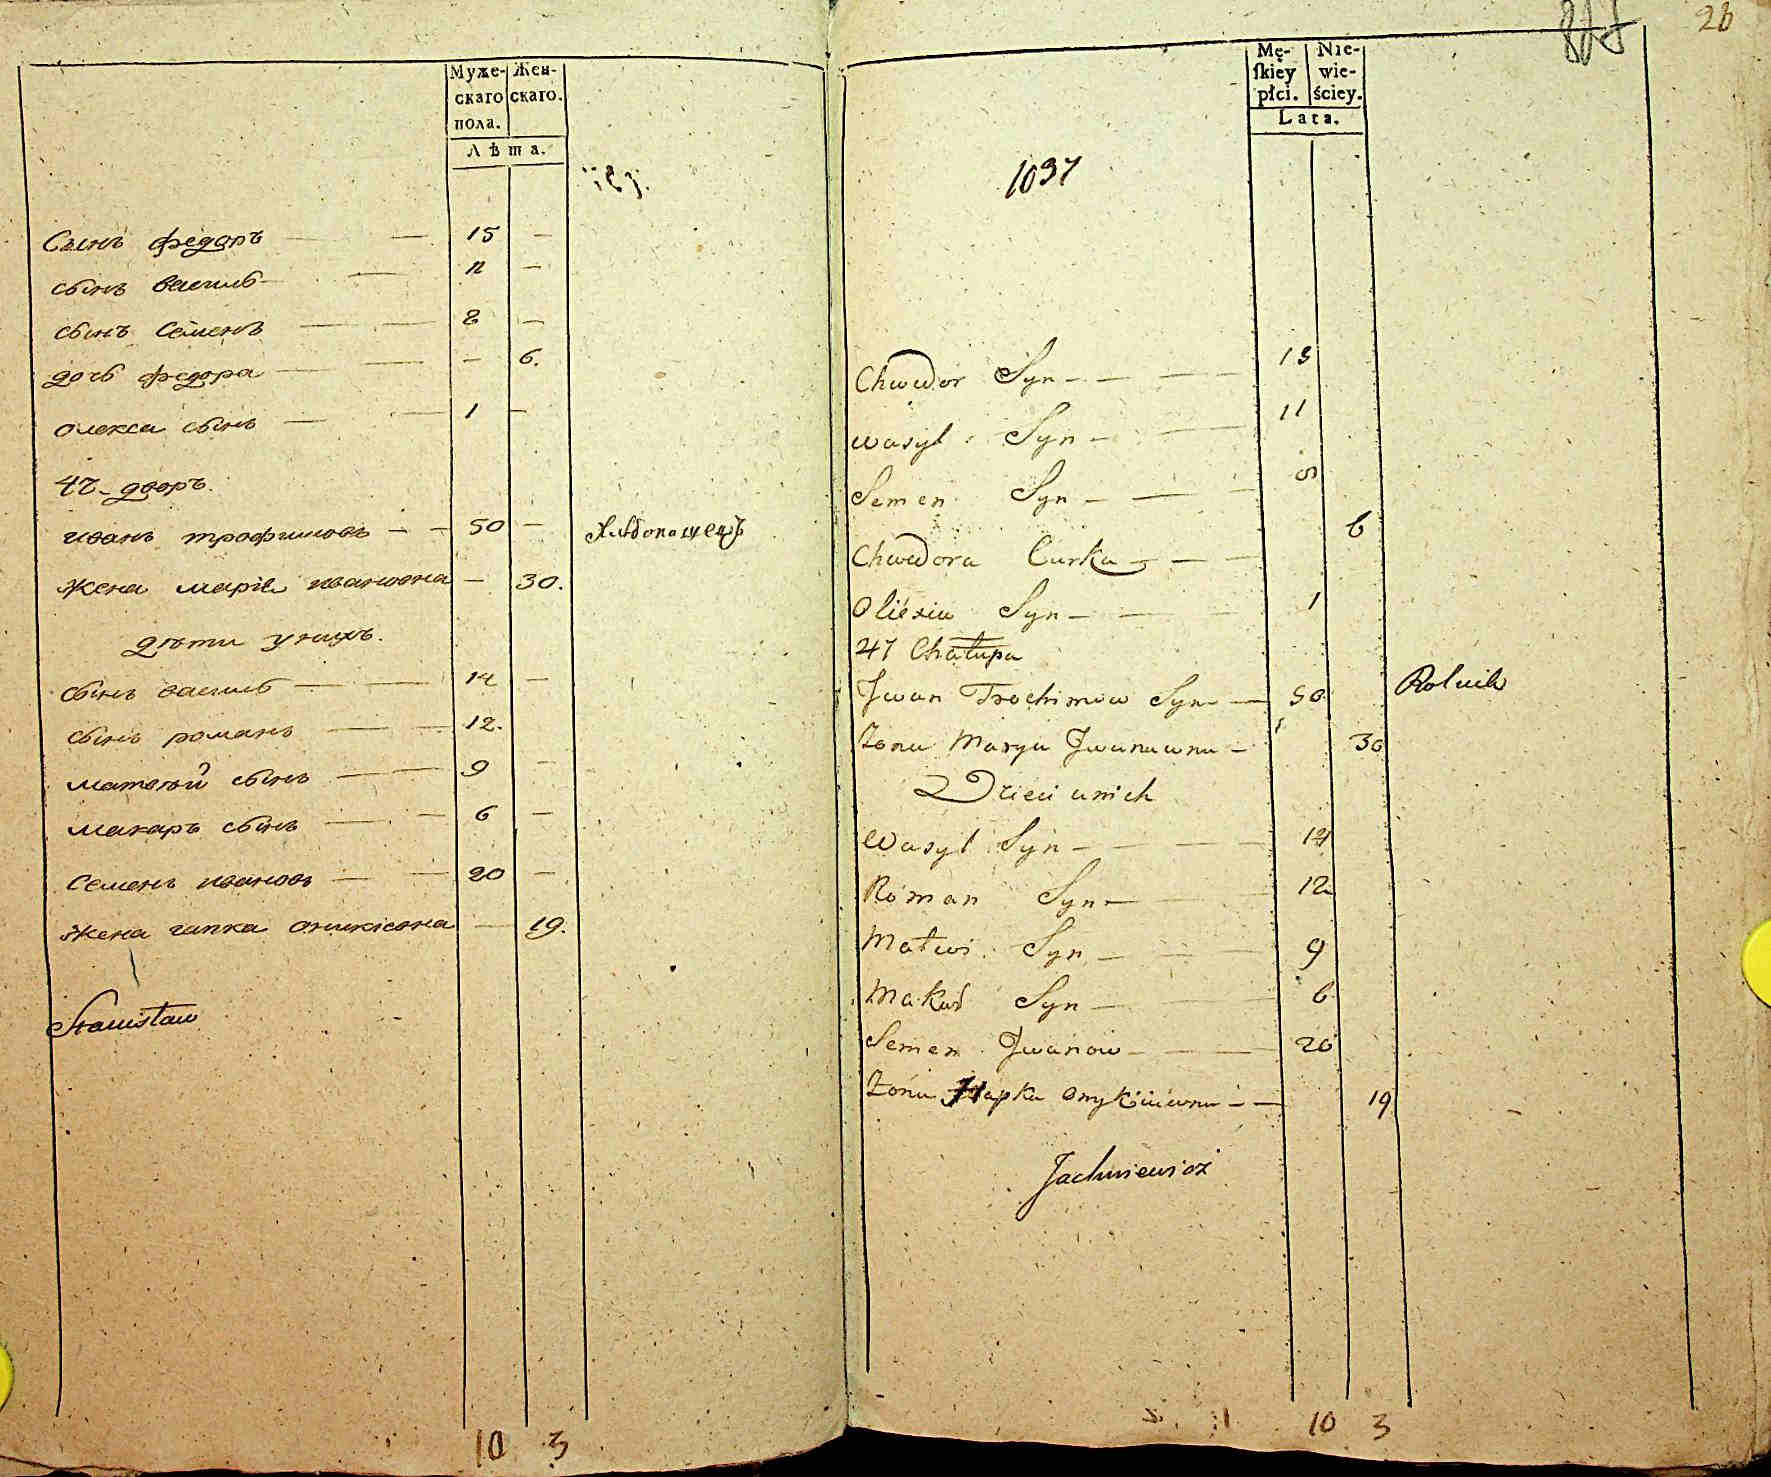 Мужескаго пола. Женскаго.
Лѣта.
Сынъ федоръ — — 15 —
сынъ василь — 11 —
сынъ Семенъ — — 8 —
дочь федора — — — 6.
олекса сынъ — — 1 —
47-дворъ.
иванъ трофимовъ — — 50 — Хлѣбопашецъ
жена марія ивановна — 30.
дѣти унихъ.
сынъ василь — — 14 —
сынъ романъ — — 12.
матвѣй сынъ — — 9 —
макаръ сынъ — — 6 —
Семенъ ивановъ — — 20 —
жена гапка оникіевна — 19.
Stanisław
10 3
26
Męskiey płci. Niewieściey.
Lata.
1037
Chwedor Syn — — — 15
Wasyl Syn — — 11
Semen Syn — — — 8
Chwedora Curka — — — 6
Olexia Syn — — — 1
47 Chałupa
Jwan Trochimow Syn — — 50 Rolnik
Żona Marya Jwanowna — 30
Dzieci unich
Wasyl Syn — — — 14
Roman Syn — — 12
Matwi Syn — — — 9
Makar Syn — — 6
Semen Jwanow — — — 20
Żona Hapka Onykiiewna — — 19
Jachniewicz
10 3